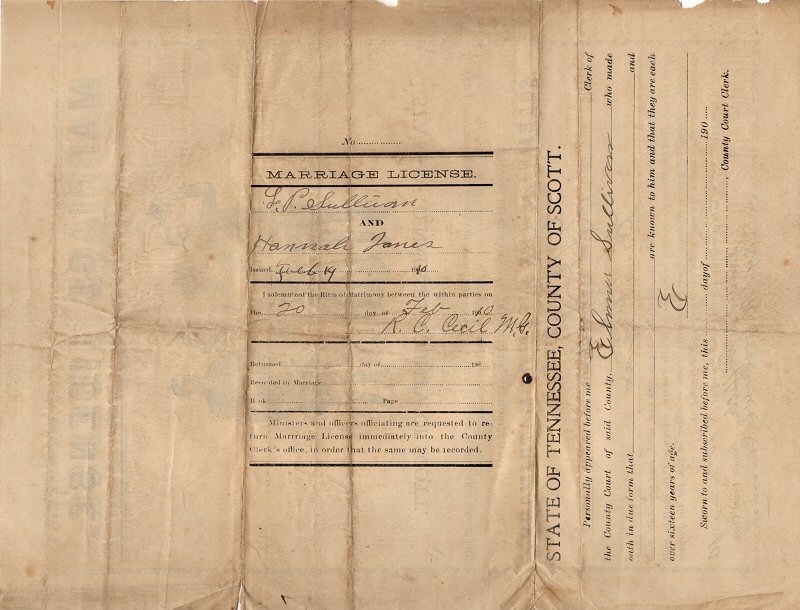 No
MARRIAGE LICENSE.
L. P. Sullivan
AND
Hannah Jones
Issued Feb 19 1910
I solemnized the Rites of Matrimony between the within parties on
the 20 day of Feb 1910
R. C. Cecil M.G.
Returned day of 190
Recorded in Marriage
Book Page
Ministers and officers officiating are requested to re-
turn Marrriage License immediately into the County
Clerk's office, in order that the same may be recorded.
STATE OF TENNESSEE, COUNTY OF SCOTT.
Personally appeared before me Clerk of
the County Court of said County, Elmer Sullivan who made
oath in due form that and
are known to him and that they are each
over sixteen years of age. E
Sworn to and subscribed before me, this day of 190
, County Court Clerk.